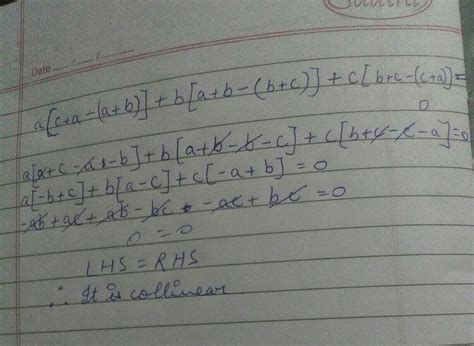 Date __/__/____
a[c+a-(a+b)]+b[a+b-(b+c)]+c[b+c-(c+a)]=
0
a[a+c-a-b]+b[a+b-b-c]+c[b+c-c-a]=0
a[-b+c]+b[a-c]+c[-a+b]=0
-ab+ac+ab-bc-ac+bc=0
0=0
LHS=RHS
∴ It is collinear